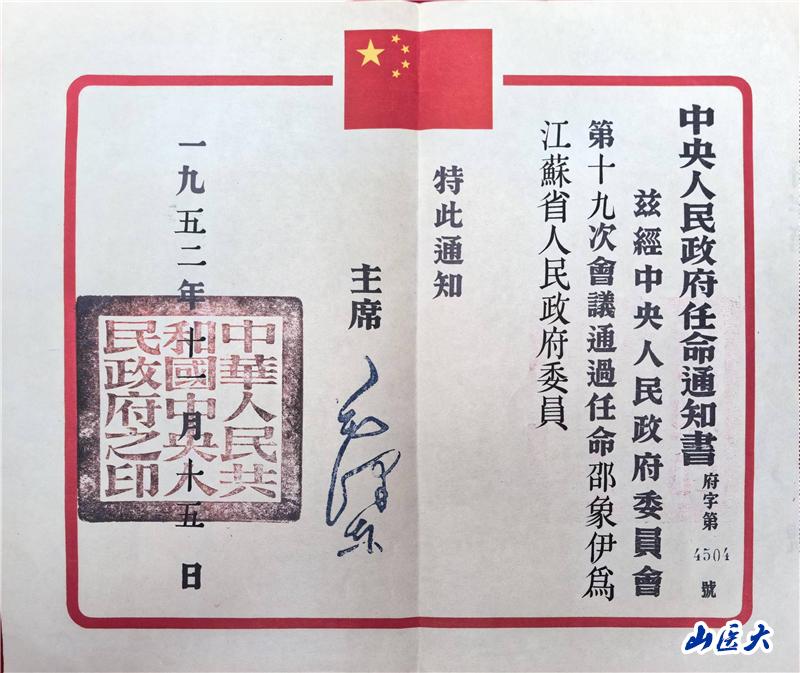 中央人民政府任命通知書
府字第4504號
兹經中央人民政府委員會
第十九次會議通過任命邵象伊爲
江蘇省人民政府委員
特此通知
主席
毛澤东
一九五二年十一月十五日
中華人民共
和國中央人
民政府之印
山医大